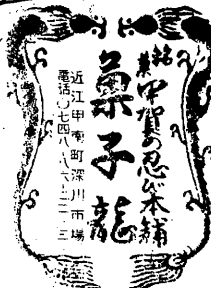 銘菓
甲賀の忍び本舗
菓子龍
近江甲南町深川市場
電話〇七四八八六